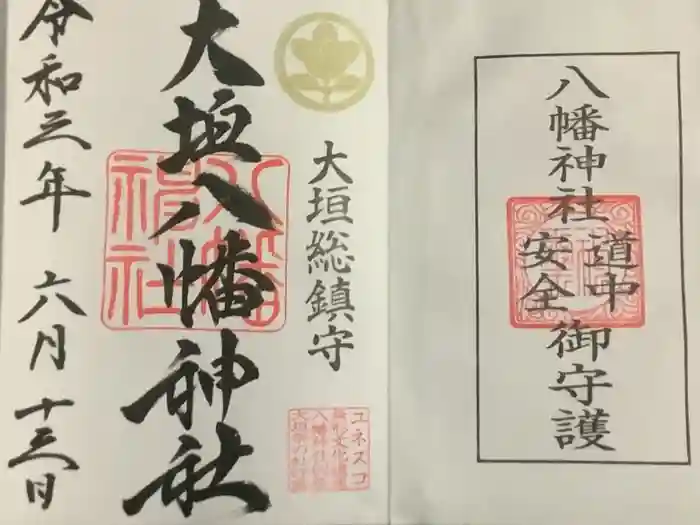 八幡神社
道中
安全
御守護
大垣総鎮守
大垣八幡神社
八幡
神社
ユネスコ
無形文化遺産
令和三年 六月 十三日